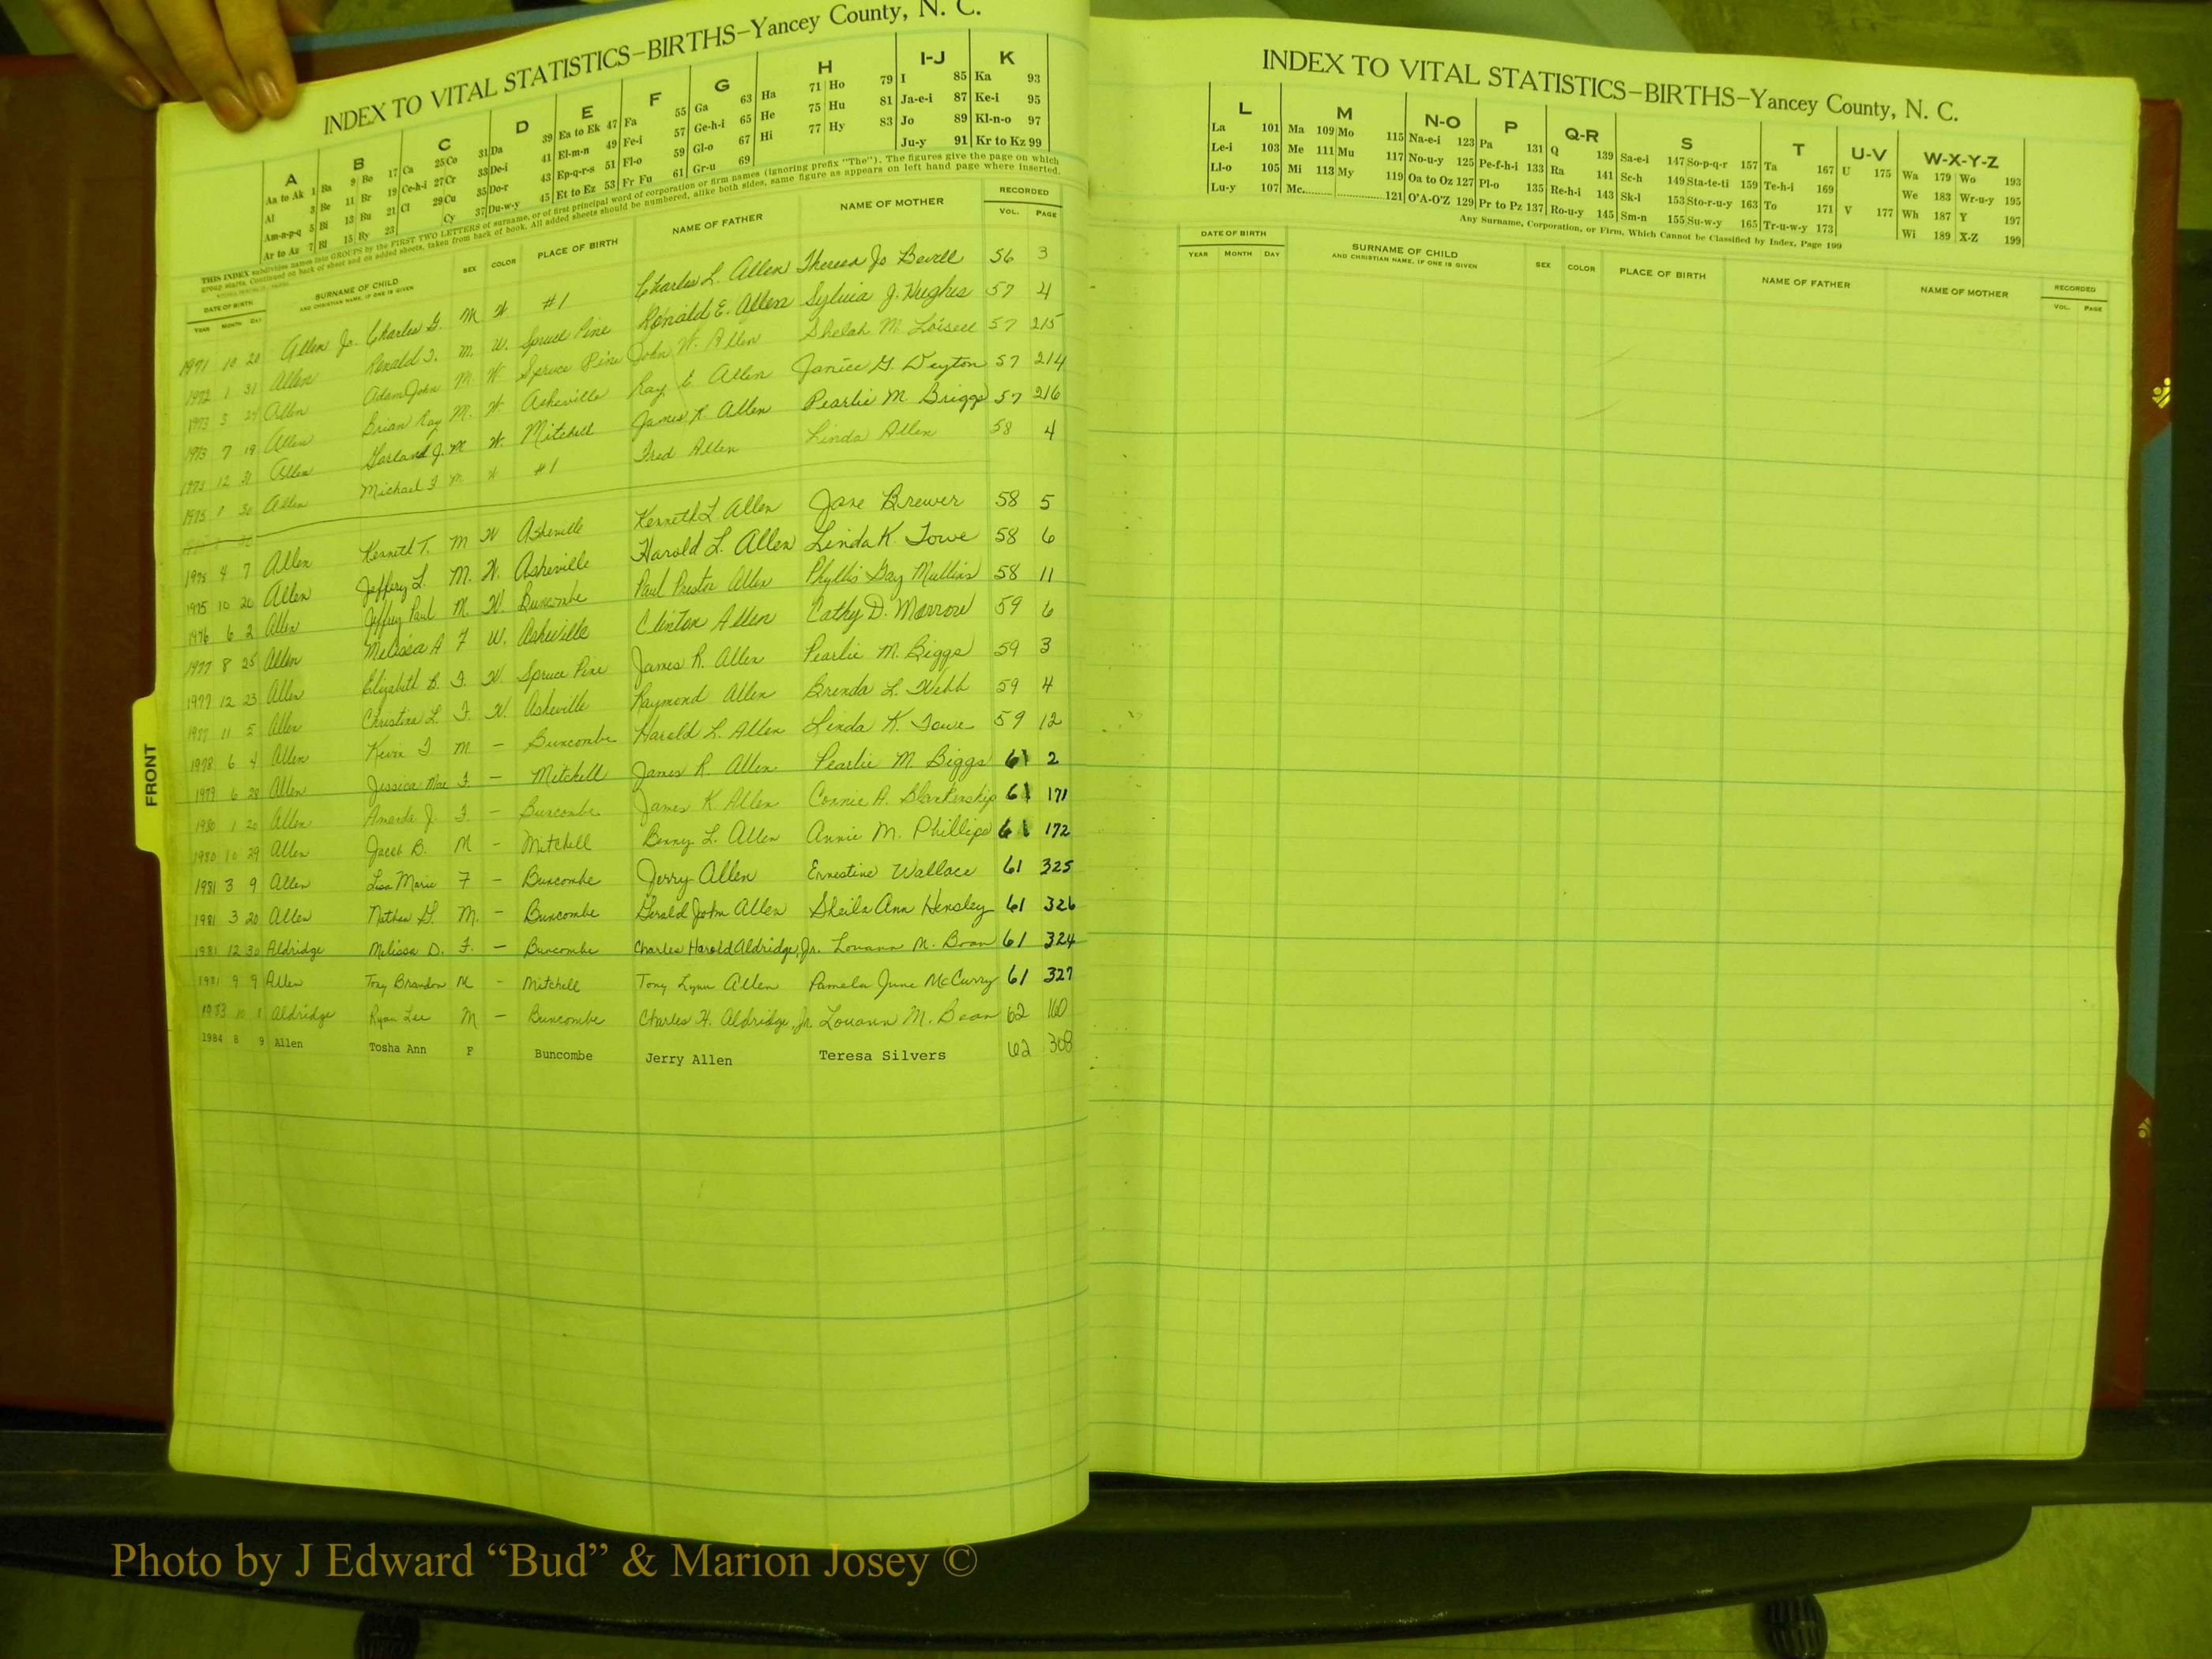 INDEX TO VITAL STATISTICS–BIRTHS–Yancey County, N. C.
A B C D E F G H I-J K
Aa to Ak 1 Ba 9 Bo 17 Ca 25 Co 31 Da 39 Ea to Ek 47 Fa 55 Ga 63 Ha 71 Ho 79 I 85 Ka 93
Al 3 Be 11 Br 19 Ce-h-i 27 Cr 33 De-i 41 El-m-n 49 Fe-i 57 Ge-h-i 65 He 75 Hu 81 Ja-e-i 87 Ke-i 95
Am-n-p-q 5 Bi 13 Bu 21 Cl 29 Cu 35 Do-r 43 Ep-q-r-s 51 Fl-o 59 Gl-o 67 Hi 77 Hy 83 Jo 89 Kl-n-o 97
Ar to Az 7 Bl 15 By 23 Cy 37 Du-w-y 45 Et to Ez 53 Fr Fu 61 Gr-u 69 Ju-y 91 Kr to Kz 99
THIS INDEX subdivides names into GROUPS by the FIRST TWO LETTERS of surname, or of first principal word of corporation or firm names (ignoring prefix "The"). The figures give the page on which
group starts. Continued on back of sheet and on added sheets, taken from back of book. All added sheets should be numbered, alike both sides, same figure as appears on left hand page where inserted.
DATE OF BIRTH SURNAME OF CHILD SEX COLOR PLACE OF BIRTH NAME OF FATHER NAME OF MOTHER RECORDED
YEAR MONTH DAY AND CHRISTIAN NAME, IF ONE IS GIVEN VOL. PAGE
1971 10 20 Allen Jr. Charles G. M W #1 Charles L. Allen Theresa Jo 56 3
1972 1 31 Allen Ronald M. W. Spruce Pine Ronald E. Allen Sylvia J. Hughes 57 4
1973 3 Allen Adam John M W Spruce Pine John W. Allen Shelah M. Loisell 57 215
1973 7 19 Allen Brian Ray M. W. Asheville Ray C Allen Janice G. Deyton 57 214
1973 12 31 Allen Garland J. M W. Mitchell James R. Allen Pearlie M Briggs 57 216
1975 1 30 Allen Michael M W #1 Fred Allen Linda Allen 58 4
1975 4 7 Allen Kenneth T. M W Asheville Kenneth L Allen Jane Brewer 58 5
1975 10 20 Allen Jeffery L. M. W. Asheville Harold L. Allen Linda K. Towe 58 6
1976 6 2 Allen Jeffrey Paul M. W. Buncombe Paul Preston Allen Phyllis Gay Mullins 58 11
1977 8 25 Allen Melissa A F W. Asheville Clinton Allen Cathy D. Morrow 59 6
1977 12 23 Allen Elizabeth B. F. W. Spruce Pine James R. Allen Pearlie M. Biggs 59 3
1977 11 5 Allen Christina L. F. W. Asheville Raymond Allen Brenda L. Webb 59 4
1978 6 4 Allen Kevin M – Buncombe Harold L. Allen Linda K. Towe 59 12
1979 6 28 Allen Jessica Mae F – Mitchell James R. Allen Pearlie M. Biggs 61 2
1980 1 20 Allen Amanda J. F – Buncombe James K. Allen Connie A. Blankenship 61 171
1980 10 29 Allen Jacob B. M – Mitchell Benny L. Allen Annie M. Phillips 61 172
1981 3 9 Allen Lisa Marie F – Buncombe Jerry Allen Ernestine Wallace 61 325
1981 3 20 Allen Nathan G. M. – Buncombe Gerald John Allen Sheila Ann Hensley 61 326
1981 12 30 Aldridge Melissa D. F. – Buncombe Charles Harold Aldridge, Jr. Louann M. Boan 61 324
1981 9 9 Allen Tony Brandon M – Mitchell Tony Lynn Allen Pamela June McCurry 61 327
1983 10 1 Aldridge Ryan Lee M – Buncombe Charles H. Aldridge, Jr. Louann M. Boan 62 160
1984 8 9 Allen Tosha Ann F Buncombe Jerry Allen Teresa Silvers 62 308
FRONT
INDEX TO VITAL STATISTICS–BIRTHS–Yancey County, N. C.
L M N-O P Q-R S T U-V W-X-Y-Z
La 101 Ma 109 Mo 115 Na-e-i 123 Pa 131 Q 139 Sa-e-i 147 So-p-q-r 157 Ta 167 U 175 Wa 179 Wo 193
Le-i 103 Me 111 Mu 117 No-u-y 125 Pe-f-h-i 133 Ra 141 Sc-h 149 Sta-te-ti 159 Te-h-i 169 We 183 Wr-u-y 195
Ll-o 105 Mi 113 My 119 Oa to Oz 127 Pl-o 135 Re-h-i 143 Sk-l 153 Sto-r-u-y 163 To 171 V 177 Wh 187 Y 197
Lu-y 107 Mc 121 O'A-O'Z 129 Pr to Pz 137 Ro-u-y 145 Sm-n 155 Su-w-y 165 Tr-u-w-y 173 Wi 189 X-Z 199
Any Surname, Corporation, or Firm, Which Cannot be Classified by Index, Page 199
DATE OF BIRTH SURNAME OF CHILD SEX COLOR PLACE OF BIRTH NAME OF FATHER NAME OF MOTHER RECORDED
YEAR MONTH DAY AND CHRISTIAN NAME, IF ONE IS GIVEN VOL. PAGE
Photo by J Edward “Bud” & Marion Josey ©